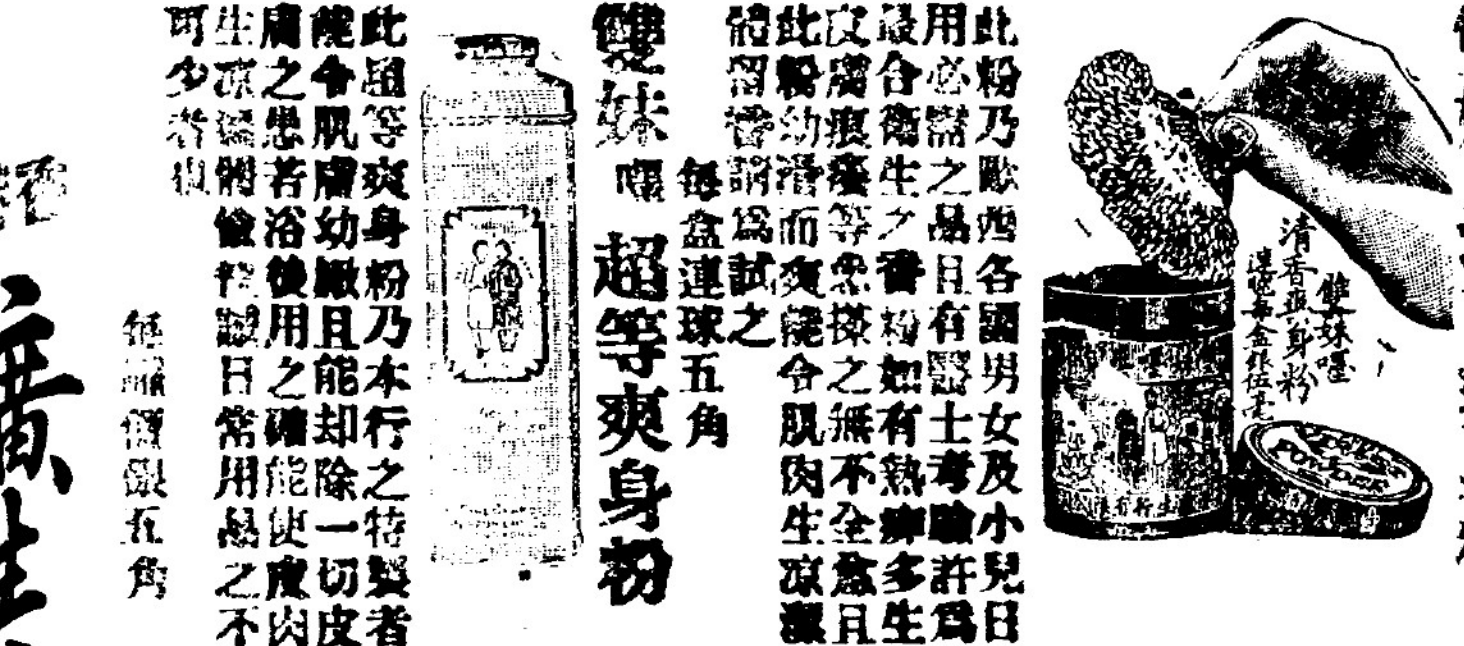 雙妹嚜
清香爽身粉
每盒銀伍毫
此粉乃歐西各國男女及小兒日
用必需之品且有醫士考驗許爲
最合衛生之香粉如有熱痱多生
皮膚痕癢等患搽之無不全愈且
此粉幼滑而爽能令肌肉生凉潔
體留香請爲試之
每盒連球五角
雙妹嚜 超等爽身粉
此超等爽身粉乃本行之特製者
能令肌膚幼嫩且能却除一切皮
膚之患若浴後用之能使皮肉
生凉日常用品之不
可少者也
每價銀五角
廣生